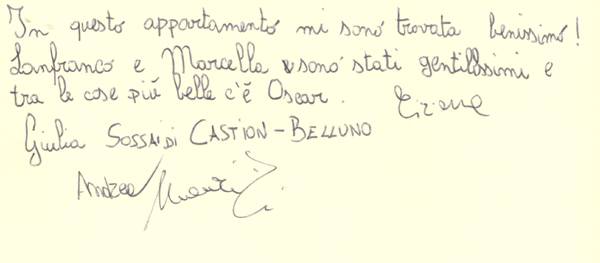 In questo appartamento mi sono trovata benissimo!
Lanfranco e Marcella sono stati gentilissimi e
tra le cose più belle c'è Oscar.
Giulia SOSSAI DI CASTION - BELLUNO
Andrea